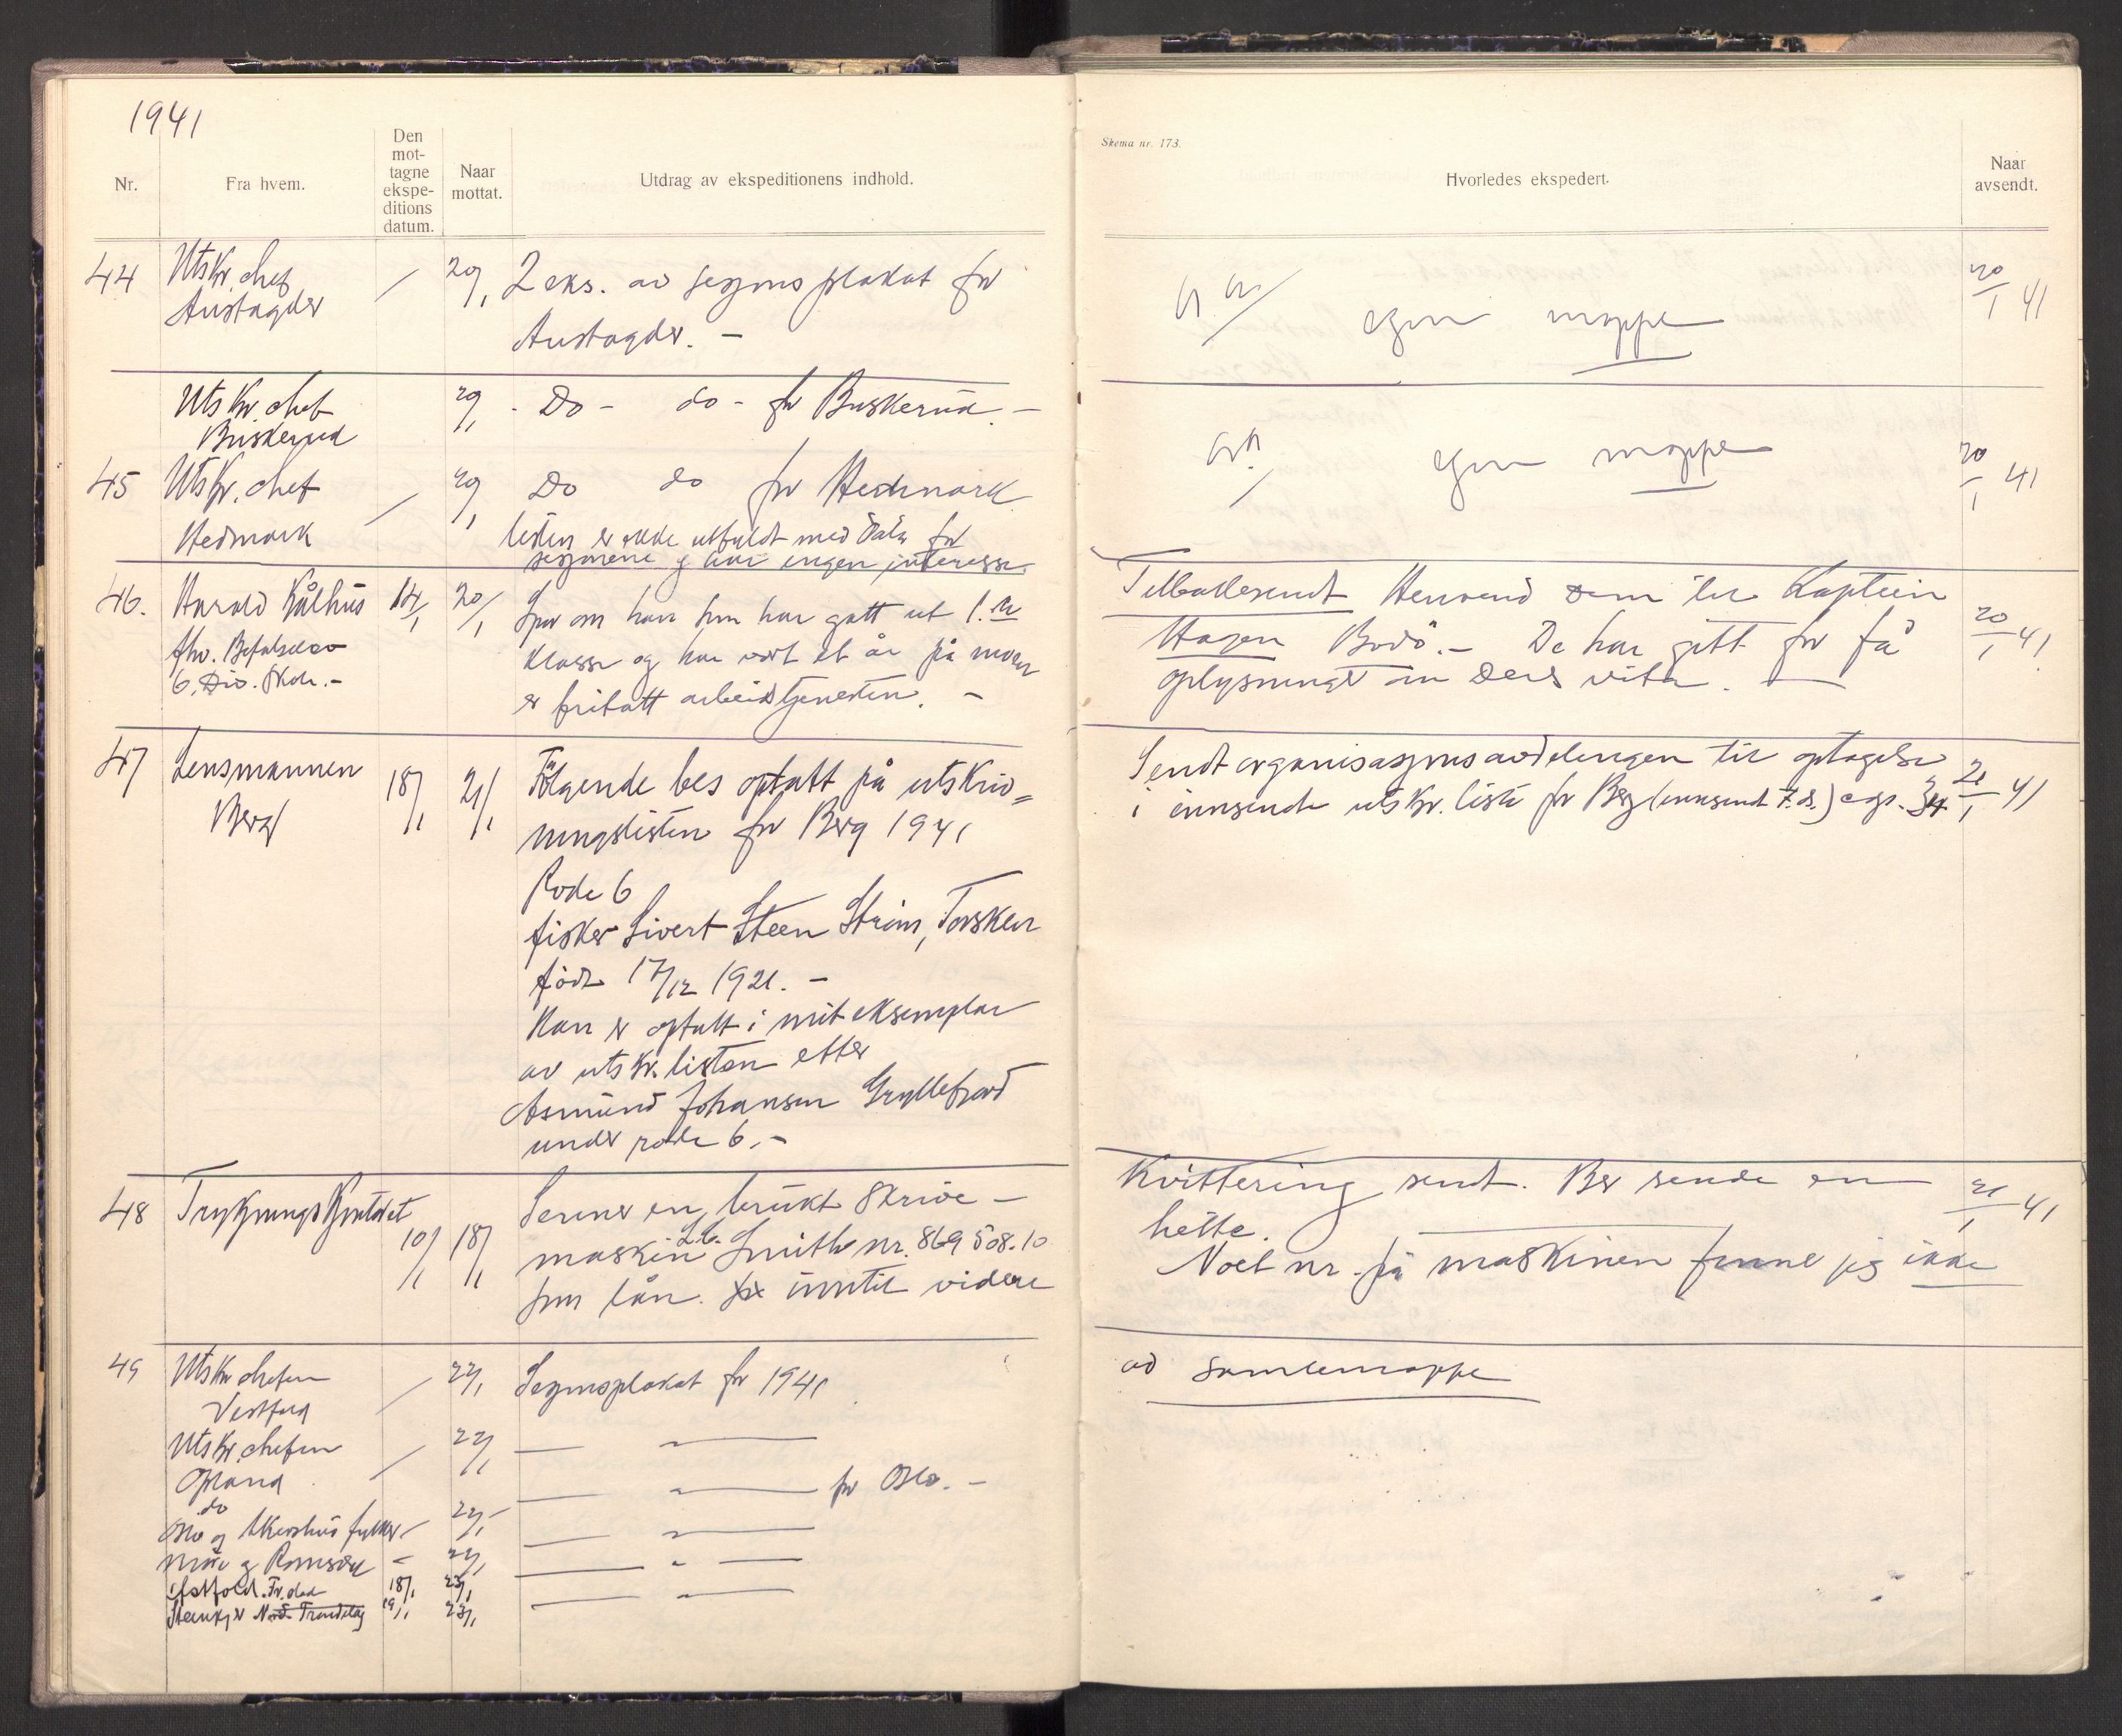 1941
Nr.
Fra hvem.
Den
mot-
tagne
ekspe-
ditions
datum.
Naar
mottat.
Utdrag av ekspeditionens indhold.
44 Utskr. chef 20/1 2 eks. av sesjons plakat for
Austagder
Austagder. -
Utskr. chef 20/1 - Do - do - for Buskerud. -
Buskerud
45 Utskr. chef 20/1 Do do for Hedmark
Hedmark
listen er ikke utfyldt med datu for
sesjonene og har ingen interesse.
46. Harald 14/1 20/1 Spør om han som har gått ut 1. kl
klasse og har vært et år på
6. Div. Skole. -
er fritatt arbeidstjenesten. -
47 Lensmannen 18/1 21/1 Følgende bes optatt på utskriv=
Berg
ningslisten for Berg 1941
Rode 6
fisker Sivert Steen Strøm, Torsken
født 17/12 1921. -
Han er optatt i mit eksemplar
av utskr. listen efter
Asmund Johansen Gryllefjord
under rode 6. -
48 10/1 18/1 en brukt skrive -
maskin L.C. Smith nr. 869508-10
som lån. inntil videre
49 Utskr chefen 22/1 Sesjonsplakat for 1941
Vestfold
Utskr. chefen 22/1 — " —
Opland
do
— " — for Oslo. -
Oslo og Akershus fylker 22/1 — " —
Møre og Romsdal - 22/1 — " —
Østfold. Fr.stad 18/1 23/1 — " —
Steinkjer Nord-Trøndelag 19/1 23/1
Skema nr. 173.
Hvorledes ekspedert.
Naar
avsendt.
egen mappe 20/1 41
egen mappe 20/1 41
Tilbakesendt Henvend dem til Kaptein
Hagen Bodø. - De har gitt for få
oplysninger om Deres 20/1 41
Sendt organisasjonsavdelingen til optagelse
i innsendte utskr. liste for Berg (innsendt 7. ds.) 21/1 41
Kvittering sendt. Ber sende en 21/1 41
hette.
Noet nr. på maskinen finne jeg ikke
ad samlemappe